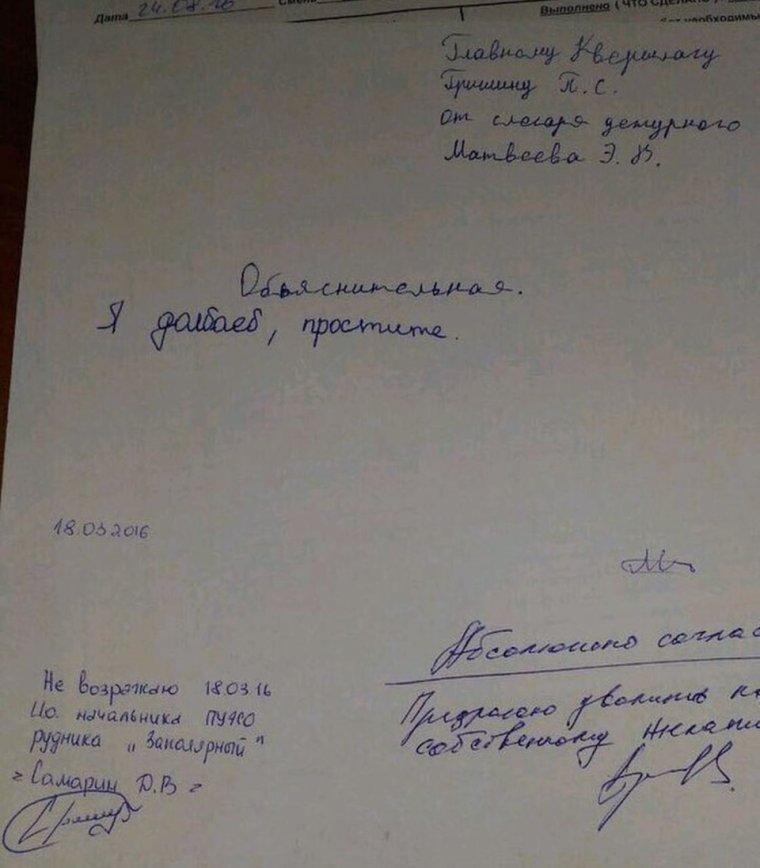 Дата 24.08.16
Выполнено ( ЧТО СДЕЛАНО
Главному Квершлагу
Гришину П.С.
от слесаря дежурного
Матвеева Э.В.
Объяснительная.
Я долбаеб, простите.
18.03.2016
Абсолютно соглас
Не возражаю 18.03.16
И.о. начальника
рудника „Заполярный"
Самарин Д.В
Предлагаю уволить по
собственному желани